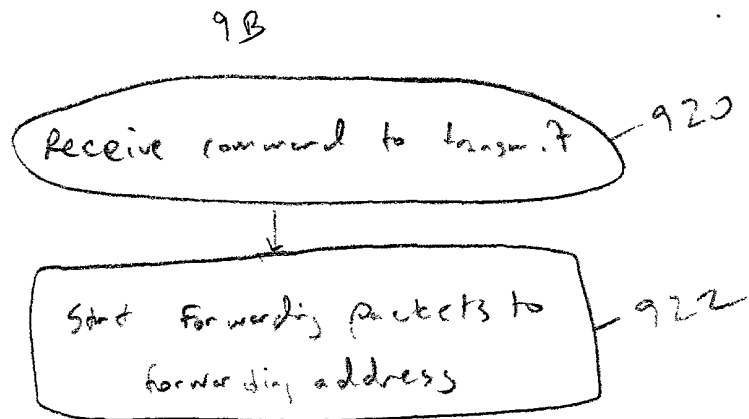 9B
Receive command to transmit
920
Start forwarding packets to
forwarding address
922